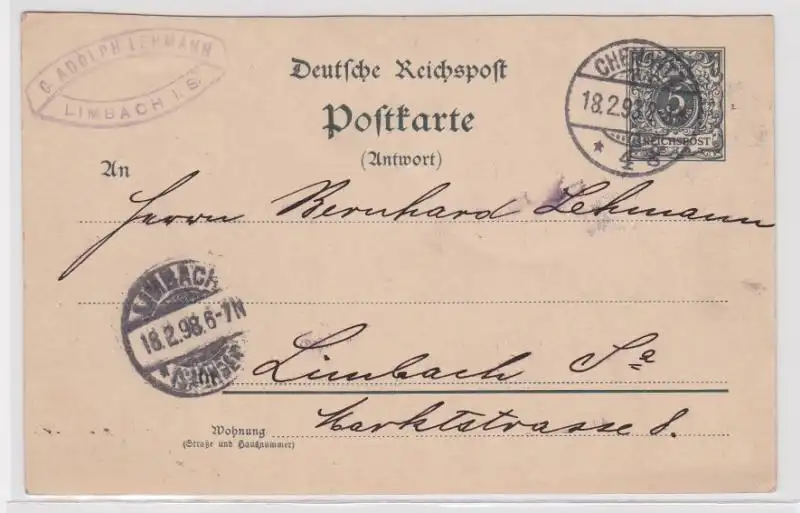 C. ADOLPH LEHMANN
LIMBACH I. S.
Deutsche Reichspost
Postkarte
(Antwort)
5
REICHSPOST
18.2.98
* 4
An
Herrn Bernhard Lehmann
LIMBACH
18.2.98.6-7N
*(SACHSEN)
Limbach Sa
Wohnung
(Straße und Hausnummer)
Marktstrasse 8.